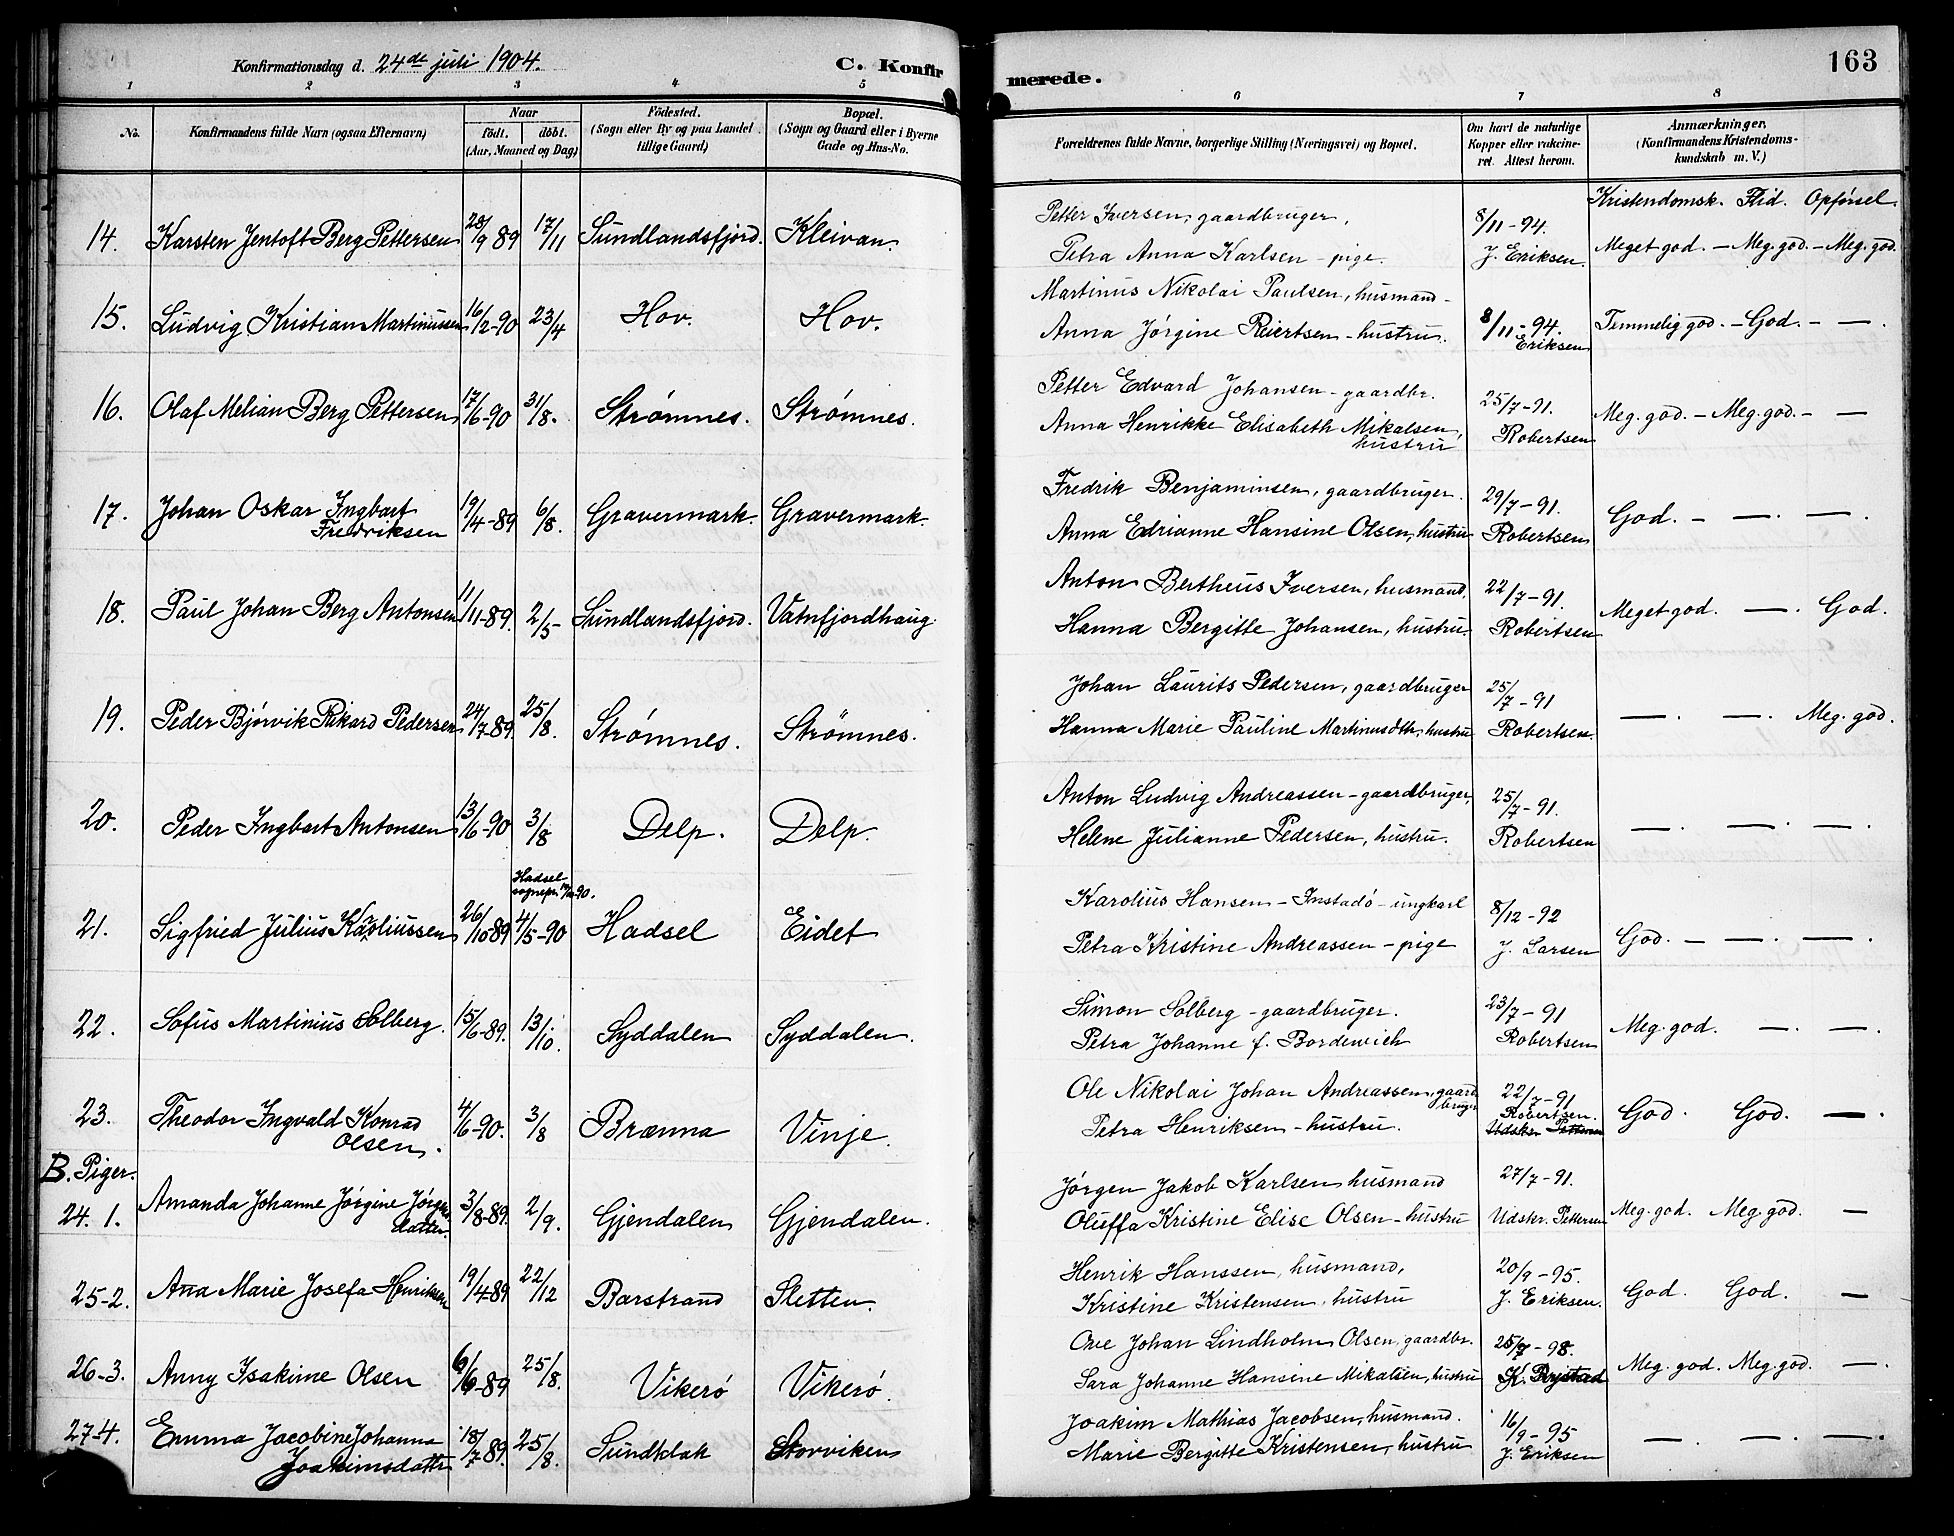 Konfirmationsdag d. 24de juli 1904. C. Konfirmerede. 163
1 2 3 4 5 6 7 8
No. Konfirmandens fulde Navn (ogsaa Efternavn) Naar født. døbt. (Aar, Maaned og Dag) Fødested. (Sogn eller By og paa Landet tillige Gaard) Bopæl. (Sogn og Gaard eller i Byerne Gade og Hus-No. Forældrenes fulde Navne, borgerlige Stilling (Næringsvei) og Bopæl. Om havt de naturlige Kopper eller vakcineret. Attest herom. Anmærkninger, (Konfirmandens Kristendomskundskab m. V.)
Kristendomsk. Flid. Opførsel.
14. Karsten Jentoft Berg Pettersen 28/9 89 17/11 Sundlandsfjord. Kleivan.
Petter Iversen, gaardbruger, 8/11-94.
Petra Anna Karlsen - pige. J. Eriksen. Meget god. - Meg. god. - Meg. god.
15. Ludvig Kristian Martinussen 16/2-90 23/4 Hov. Hov.
Martinus Nikolai Paulsen, husmand -
Anna Jørgine Reiertsen - hustru. 8/11-94. Eriksen Temmelig god. - God. - — .
16. Olaf Melian Berg Pettersen 17/6-90 31/8. Strømnes. Strømnes.
Petter Edvard Johansen - gaardbr. 25/7-91.
Anna Henrikke Elisabeth Mikalsen, hustru Robertsen Meg. god. - Meg. god. - —
17. Johan Oskar Ingbart Fredriksen 19/4-89 6/8. Gravermark. Gravermark.
Fredrik Benjaminsen, gaardbruger. 29/7-91.
Anna Edrianne Hansine Olsen, hustru Robertsen God. - — . — .
18. Paul Johan Berg Antonsen 11/11-89. 2/5- Sundlandsfjord. Vatnfjordhaug.
Anton Bertheus Iversen, husmand, 22/7-91.
Hanna Bergitte Johansen, hustru. Robertsen Meget god. — . God.
19. Peder Bjørvik Rikard Pedersen 24/7-89. 25/8. Strømnes. Strømnes.
Johan Laurits Pedersen, gaardbruger 25/7-91
Hanna Marie Pauline Martinusdtr, hustru Robertsen. — . — . Meg. god.
20. Peder Ingbart Antonsen 13/6-90 3/8 Delp. Delp.
Anton Ludvig Andreassen - gaardbruger, 25/7-91.
Helene Julianne Pedersen, hustru. Robertsen — . — . — .
21. Sigfried Julius Karoliussen 26/10-89 4/5-90 Hadsel Eidet
Karolius Hansen - Instadø - ungkarl 8/12-92
Petra Kristine Andreassen - pige J. Larsen God. - — . — .
22. Sofus Martinius Solberg. 15/6-89. 13/10. Syddalen Syddalen.
Simon Solberg - gaardbruger. 23/7-91
Petra Johanne f. Bordewich Robertsen Meg. god. — . — .
23. Theodor Ingvald Konrad Olsen. 4/6-90. 3/8 Brænna Vinje.
Ole Nikolai Johan Andreassen, gaardbruger 22/7-91
Petra Henriksen - hustru. Robertsen. Udskr. Pettersen God. God. — .
B. Piger.
24. 1. Amanda Johanne Jørgine Jørgensdatter. 3/8-89. 2/9. Gjendalen Gjendalen.
Jørgen Jakob Karlsen husmand 27/7-91.
Oluffa Kristine Elise Olsen - hustru Udskr. Pettersen Meg. god. Meg. god. —
25-2. Ana Marie Josefa Henriksen 19/4-89 22/12 Barstrand Sletten.
Henrik Hanssen, husmand, 20/9-95.
Kristine Kristensen, hustru J. Eriksen. God. God. —
26-3. Anny Isakine Olsen 6/6-89 25/8. Vikerø Vikerø.
Ove Johan Lindholm Olsen, gaardbr. 25/7-98.
Sara Johanne Hansine Mikalsen, hustru K. Rystad Meg. god. Meg. god. — .
27-4. Emma Jacobine Johanna Joakimsdattr 18/7-89. 25/8. Sundklak Storviken
Joakim Mathias Jacobsen, husmand. 16/9-95
Marie Bergitte Kristensen, hustru J. Eriksen — . — . — .